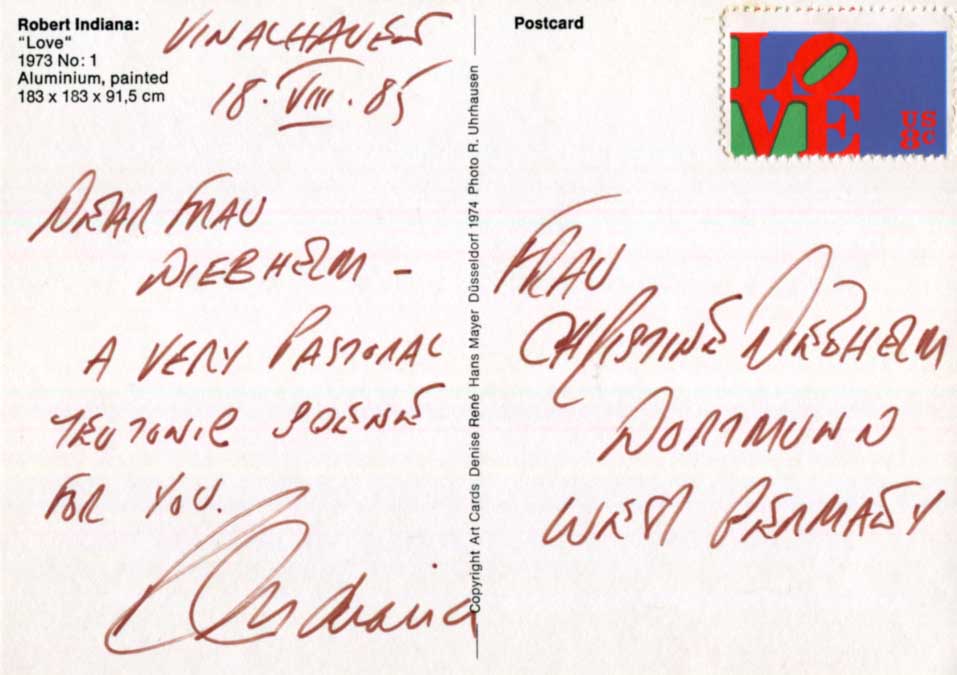 Robert Indiana:
"Love"
1973 No: 1
Aluminium, painted
183 x 183 x 91,5 cm
VINALHAVEN
18. VIII. 85
DEAR FRAU
DIEBHELM -
A VERY PASTORAL
TEUTONIC SCENE
FOR YOU.
Indiana
Copyright Art Cards Denise René Hans Mayer Düsseldorf 1974 Photo R. Uhrhausen
Postcard
LOVE
US
8c
FRAU
CHRISTINE DIEBHELM
DORTMUND
WEST GERMANY